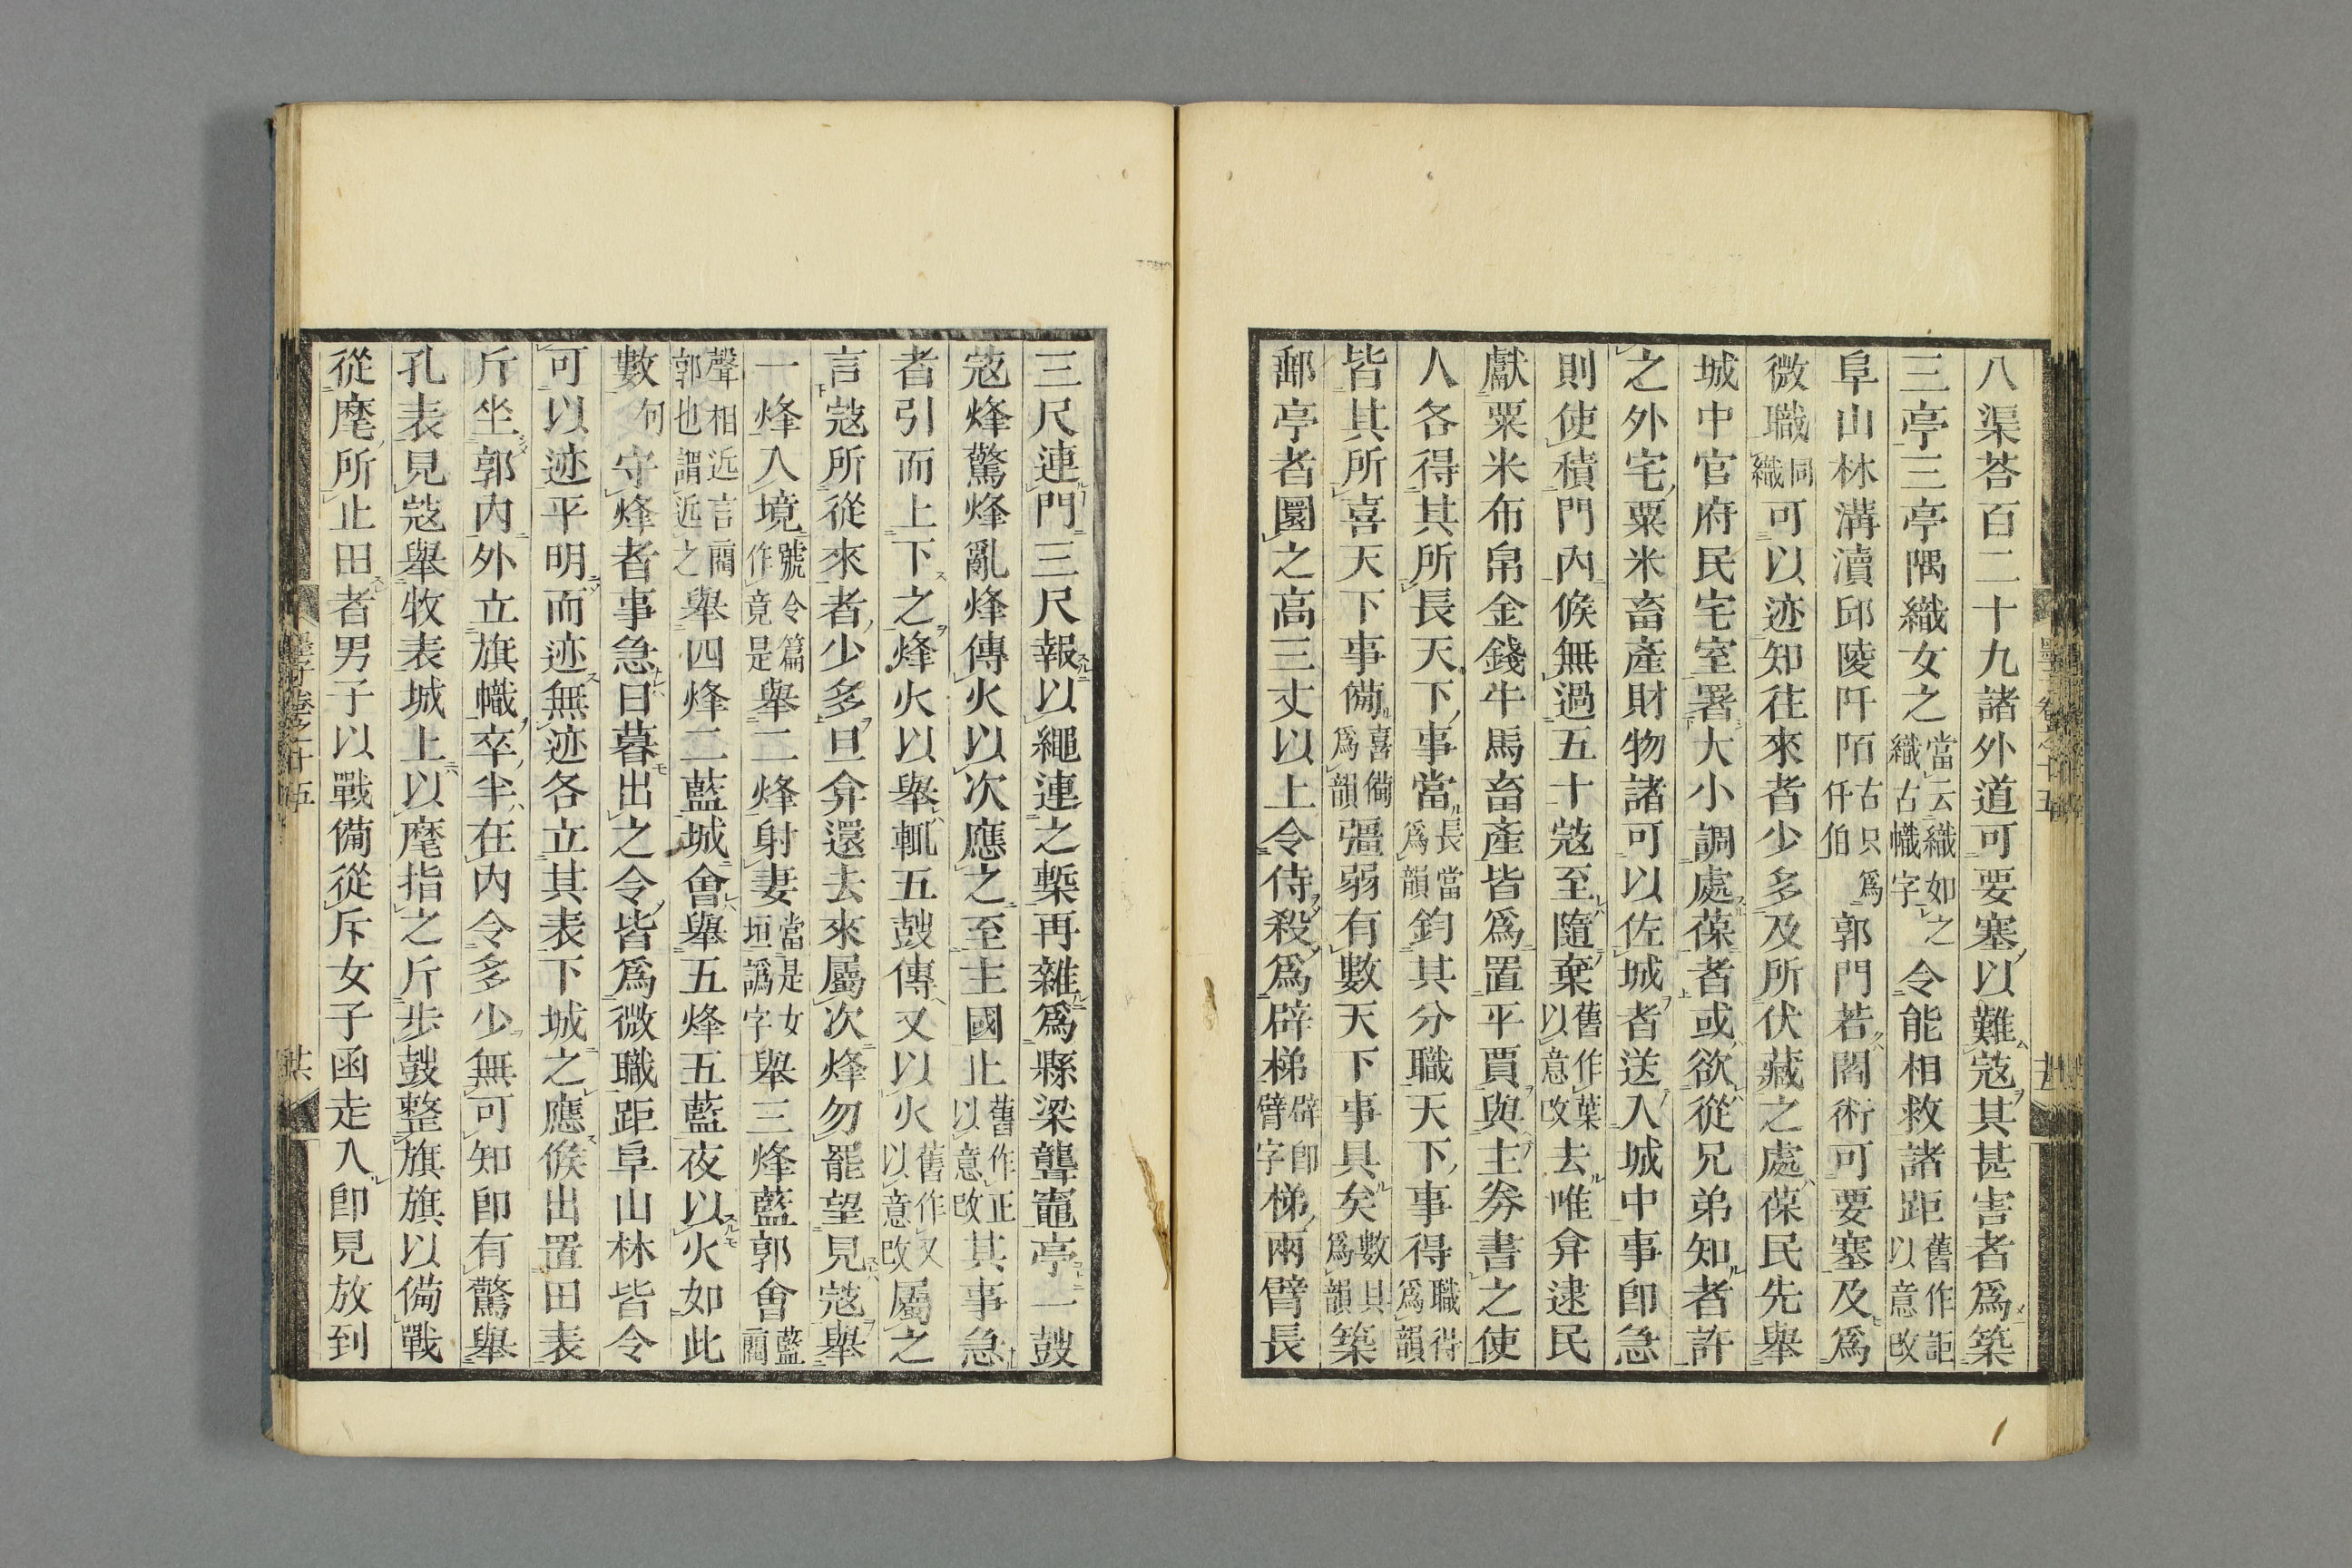 八渠荅百二十九諸外道可要塞以難寇其甚害者爲築
三亭三亭隅織女之當云織如之織古幟字令能相救諸距舊作詎以意改
阜山林溝瀆邱陵阡陌古只爲仟伯郭門若閻術可要塞及爲
微職同織可以迹知往來者少多及所伏藏之處葆民先舉
城中官府民宅室署大小調處葆者或欲從兄弟知者許
之外宅粟米畜產財物諸可以佐城者送入城中事卽急
則使積門內候無過五十寇至隨棄舊作葉以意改去唯弇逮民
獻粟米布帛金錢牛馬畜產皆爲置平賈與主劵書之使
人各得其所長天下事當長當爲韻鈞其分職天下事得職得爲韻
皆其所喜天下事備喜備爲韻彊弱有數天下事具矣數具爲韻築
郵亭者圜之高三丈以上令侍殺爲辟梯辟卽臂字梯兩臂長
三尺連門三尺報以繩連之槧再雜爲縣梁聾竈亭一鼓
寇烽驚烽亂烽傳火以次應之至主國止舊作正以意改其事急
者引而上下之烽火以舉輒五鼓傳又以火舊作又以意改屬之
言寇所從來者少多旦弇還去來屬次烽勿罷望見寇舉
一烽入境號令篇作竟是舉二烽射妻當是女垣譌字舉三烽藍郭會藍䦨
聲相近言䦨郭也謂近之舉四烽二藍城會舉五烽五藍夜以火如此
數何守烽者事急日暮出之令皆爲微職距阜山林皆令
可以迹平明而迹無迹各立其表下城之應候出置田表
斤坐郭內外立旗幟卒半在內令多少無可知卽有驚舉
孔表見寇舉牧表城上以麾指之斤步鼓整旗旗以備戰
從麾所止田者男子以戰備從斥女子函走入卽見放到